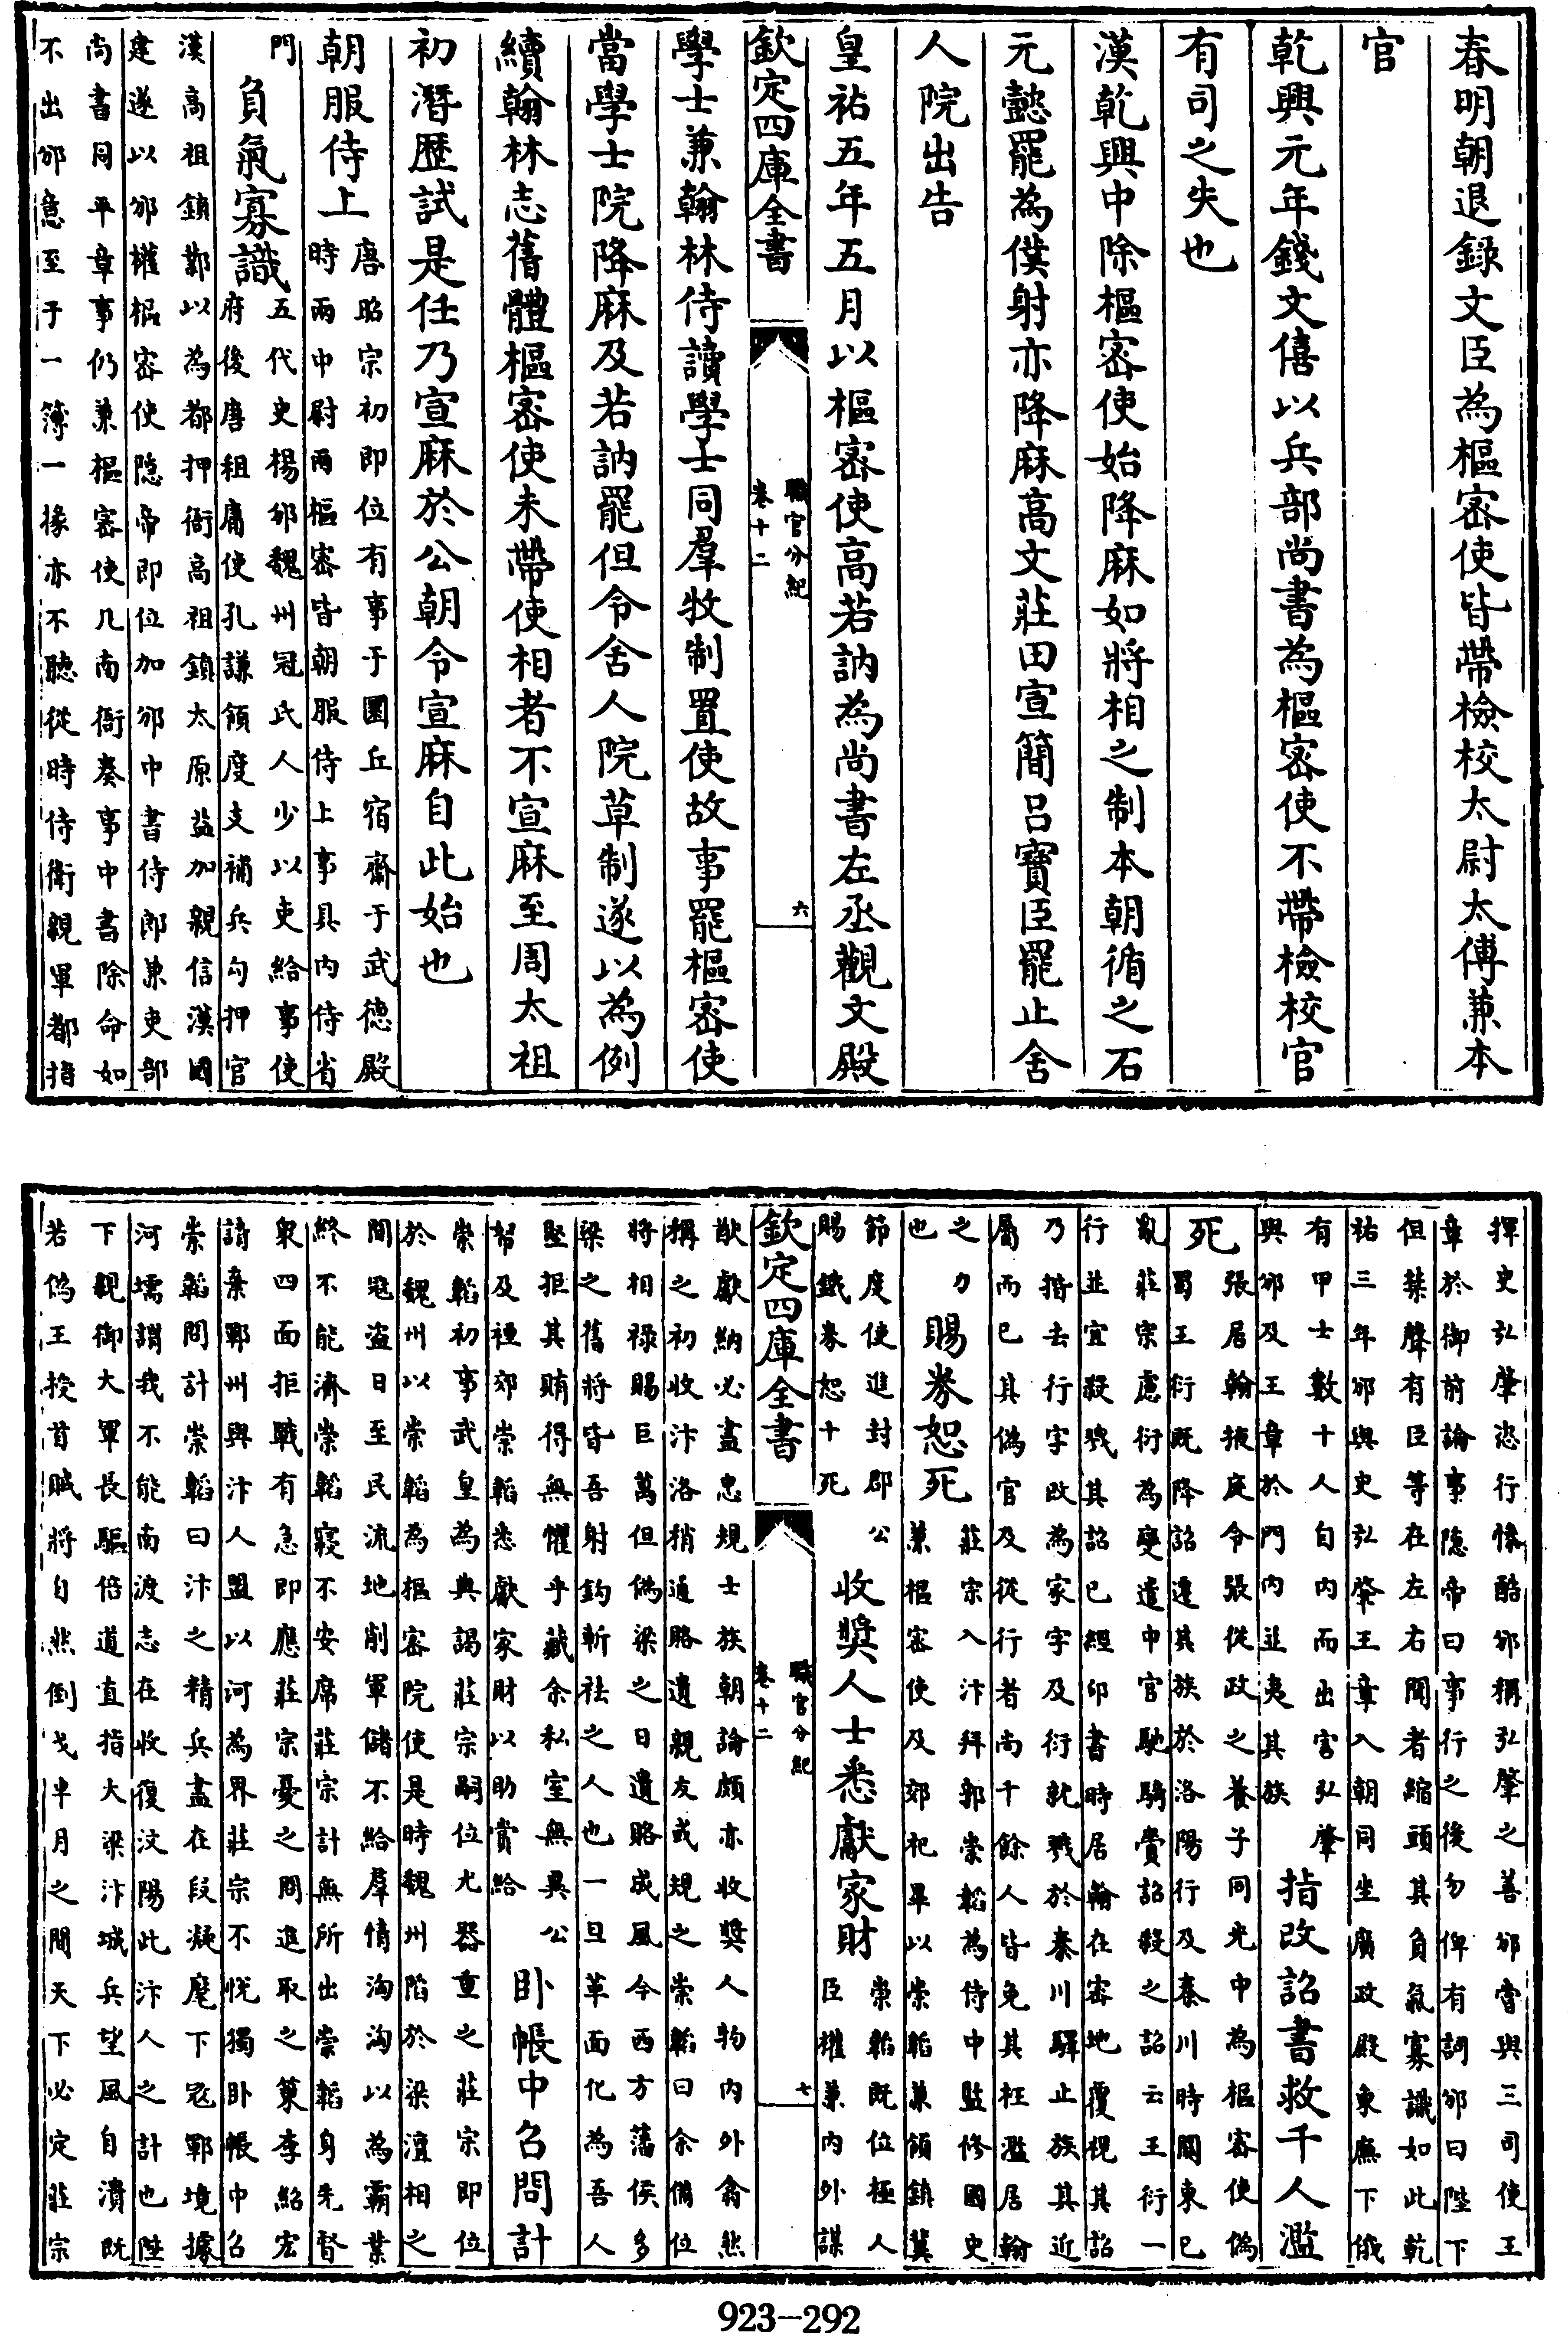 春明朝退録文臣為樞密使皆帶檢校太尉太傅兼本
官
乾興元年錢文僖以兵部尚書為樞密使不帶檢校官
有司之失也
漢乾興中除樞密使始降麻如將相之制本朝循之石
元懿罷為僕射亦降麻高文莊田宣簡呂寶臣罷止舍
人院出告
皇祐五年五月以樞密使高若訥為尚書左丞觀文殿
欽定四庫全書
職官分紀
卷十二
六
學士兼翰林侍讀學士同羣牧制置使故事罷樞密使
當學士院降麻及若訥罷但令舍人院草制遂以為例
續翰林志舊體樞密使未帶使相者不宣麻至周太祖
初潛歴試是任乃宣麻於公朝令宣麻自此始也
朝服侍上
唐昭宗初即位有事于圜丘宿齋于武德殿
時兩中尉兩樞密皆朝服侍上事具内侍省
門
負氣寡識
五代史楊邠魏州冠氏人少以吏給事使
府後唐租庸使孔謙領度支補兵勾押官
漢高祖鎮鄴以為都押衙高祖鎮太原益加親信漢國
建遂以邠權樞密使隐帝即位加邠中書侍郎兼吏部
尚書同平章事仍兼樞密使凡南衙奏事中書除命如
不出邠意至于一簿一掾亦不聽從時侍衛親軍都指
揮史弘肇恣行慘酷邠稱弘肇之善邠嘗與三司使王
章於御前論事隐帝曰事行之後勿俾有詞邠曰陛下
但禁聲有臣等在左右聞者縮頭其負氣寡識如此乾
祐三年邠與史弘肇王章入朝同坐廣政殿東廡下俄
有甲士數十人自内而出害弘肇
與邠及王章於門内並夷其族
指改詔書救千人濫
死
張居翰掖庭令張從政之養子同光中為樞密使偽
蜀王衍既降詔遷其族於洛陽行及秦川時關東已
亂莊宗慮衍為變遣中官馳騎賫詔殺之詔云王衍一
行並宜殺戮其詔已經印書時居翰在密地覆視其詔
乃揩去行字改為家字及衍就戮於秦川驛止族其近
屬而已其偽官及從行者尚千餘人皆免其枉濫居翰
之力
也
賜券恕死
莊宗入汴拜郭崇韜為侍中監修國史
兼樞密使及郊祀畢以崇韜兼領鎮冀
節度使進封郡公
賜鐵券恕十死
收奬人士悉獻家財
崇韜既位極人
臣權兼内外謀
欽定四庫全書
職官分紀
卷十二
七
猷獻納必盡忠規士族朝論頗亦收奬人物内外翕然
稱之初收汴洛稍通賂遺親友或規之崇韜曰余備位
將相禄賜巨萬但偽梁之日遺賂成風今西方藩侯多
梁之舊將皆吾射鈎斬祛之人也一旦革面化為吾人
堅拒其賄得無懼乎藏余私室無異公
帑及禋郊崇韜悉獻家財以助賞給
卧帳中召問計
崇韜初事武皇為典謁莊宗嗣位尤器重之莊宗即位
於魏州以崇韜為樞密院使是時魏州陷於梁澶相之
間冦盗日至民流地削軍儲不給羣情洶洶以為霸業
終不能濟崇韜寢不安席莊宗計無所出崇韜身先督
衆四面拒戰有急即應莊宗憂之問進取之策李紹宏
請棄鄆州與汴人盟以河為界莊宗不悦獨卧帳中召
崇韜問計崇韜曰汴之精兵盡在段凝麾下冦鄆境據
河壖謂我不能南渡志在收復汶陽此汴人之計也陛
下親御大軍長驅倍道直指大梁汴城兵望風自潰既
若偽王授首賊將自然倒戈半月之間天下必定莊宗
923-292